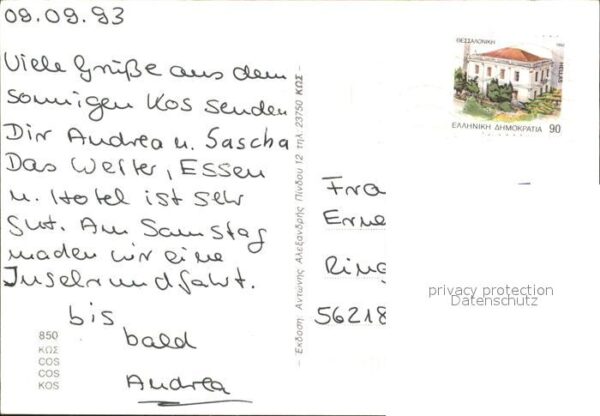 09.09.93
Viele Grüße aus dem
sonnigen Kos senden
Dir Andrea u. Sascha
Das Wetter, Essen
u. Hotel ist sehr
gut. Am Samstag
machen wir eine
Inselrundfahrt.
bis
bald
Andrea
850
ΚΩΣ
COS
COS
KOS
- Έκδοση: Αντώνης Αλεξανδρής Πίνδου 12 τηλ. 23750 ΚΩΣ -
ΘΕΣΣΑΛΟΝΙΚΗ
HELLAS
ΕΛΛΗΝΙΚΗ ΔΗΜΟΚΡΑΤΙΑ 90
Fra
Erne
Ring
56218
privacy protection
Datenschutz